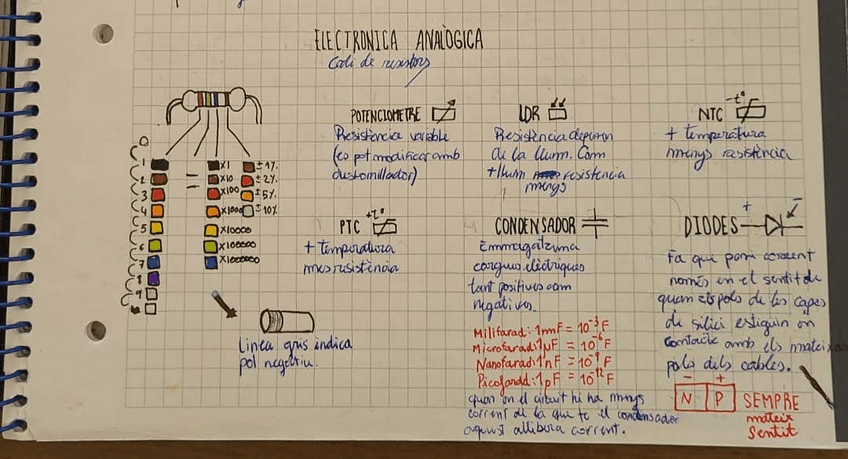 ELECTRONICA ANALÒGICA
Codi de resistors
POTENCIOMETRE
Resistència variable
(es pot modificar amb
destornillador)
LDR
Resistència depenen
de la llum. Com
+ llum resistencia
menys
NTC -tº
+ temperatura
menys resistència
0
1
2
3
4
5
6
7
8
9
x1
x10
x100
x1000
x10000
x100000
x1000000
± 1%
± 2%
± 5%
± 10%
=
PTC +tº
+ temperatura
mes resistència
CONDENSADOR
Emmagatzema
càrregues elèctriques
tant positives com
negatives.
Milifarad: 1mF = 10⁻³F
Microfarad: 1µF = 10⁻⁶F
Nanofarad: 1nF = 10⁻⁹F
Picofaradd: 1pF = 10⁻¹²F
quan en el circuit hi ha menys
corrent de la que te el condensador
aquest allibera corrent.
DIODES + -
Fa que passi corrent
només en el sentit de
quan els pols de les capes
de silici estiguin en
contacte amb els mateixos
pols dels cables.
- +
N P
SEMPRE
mateix
sentit
Linea gris indica
pol negatiu.